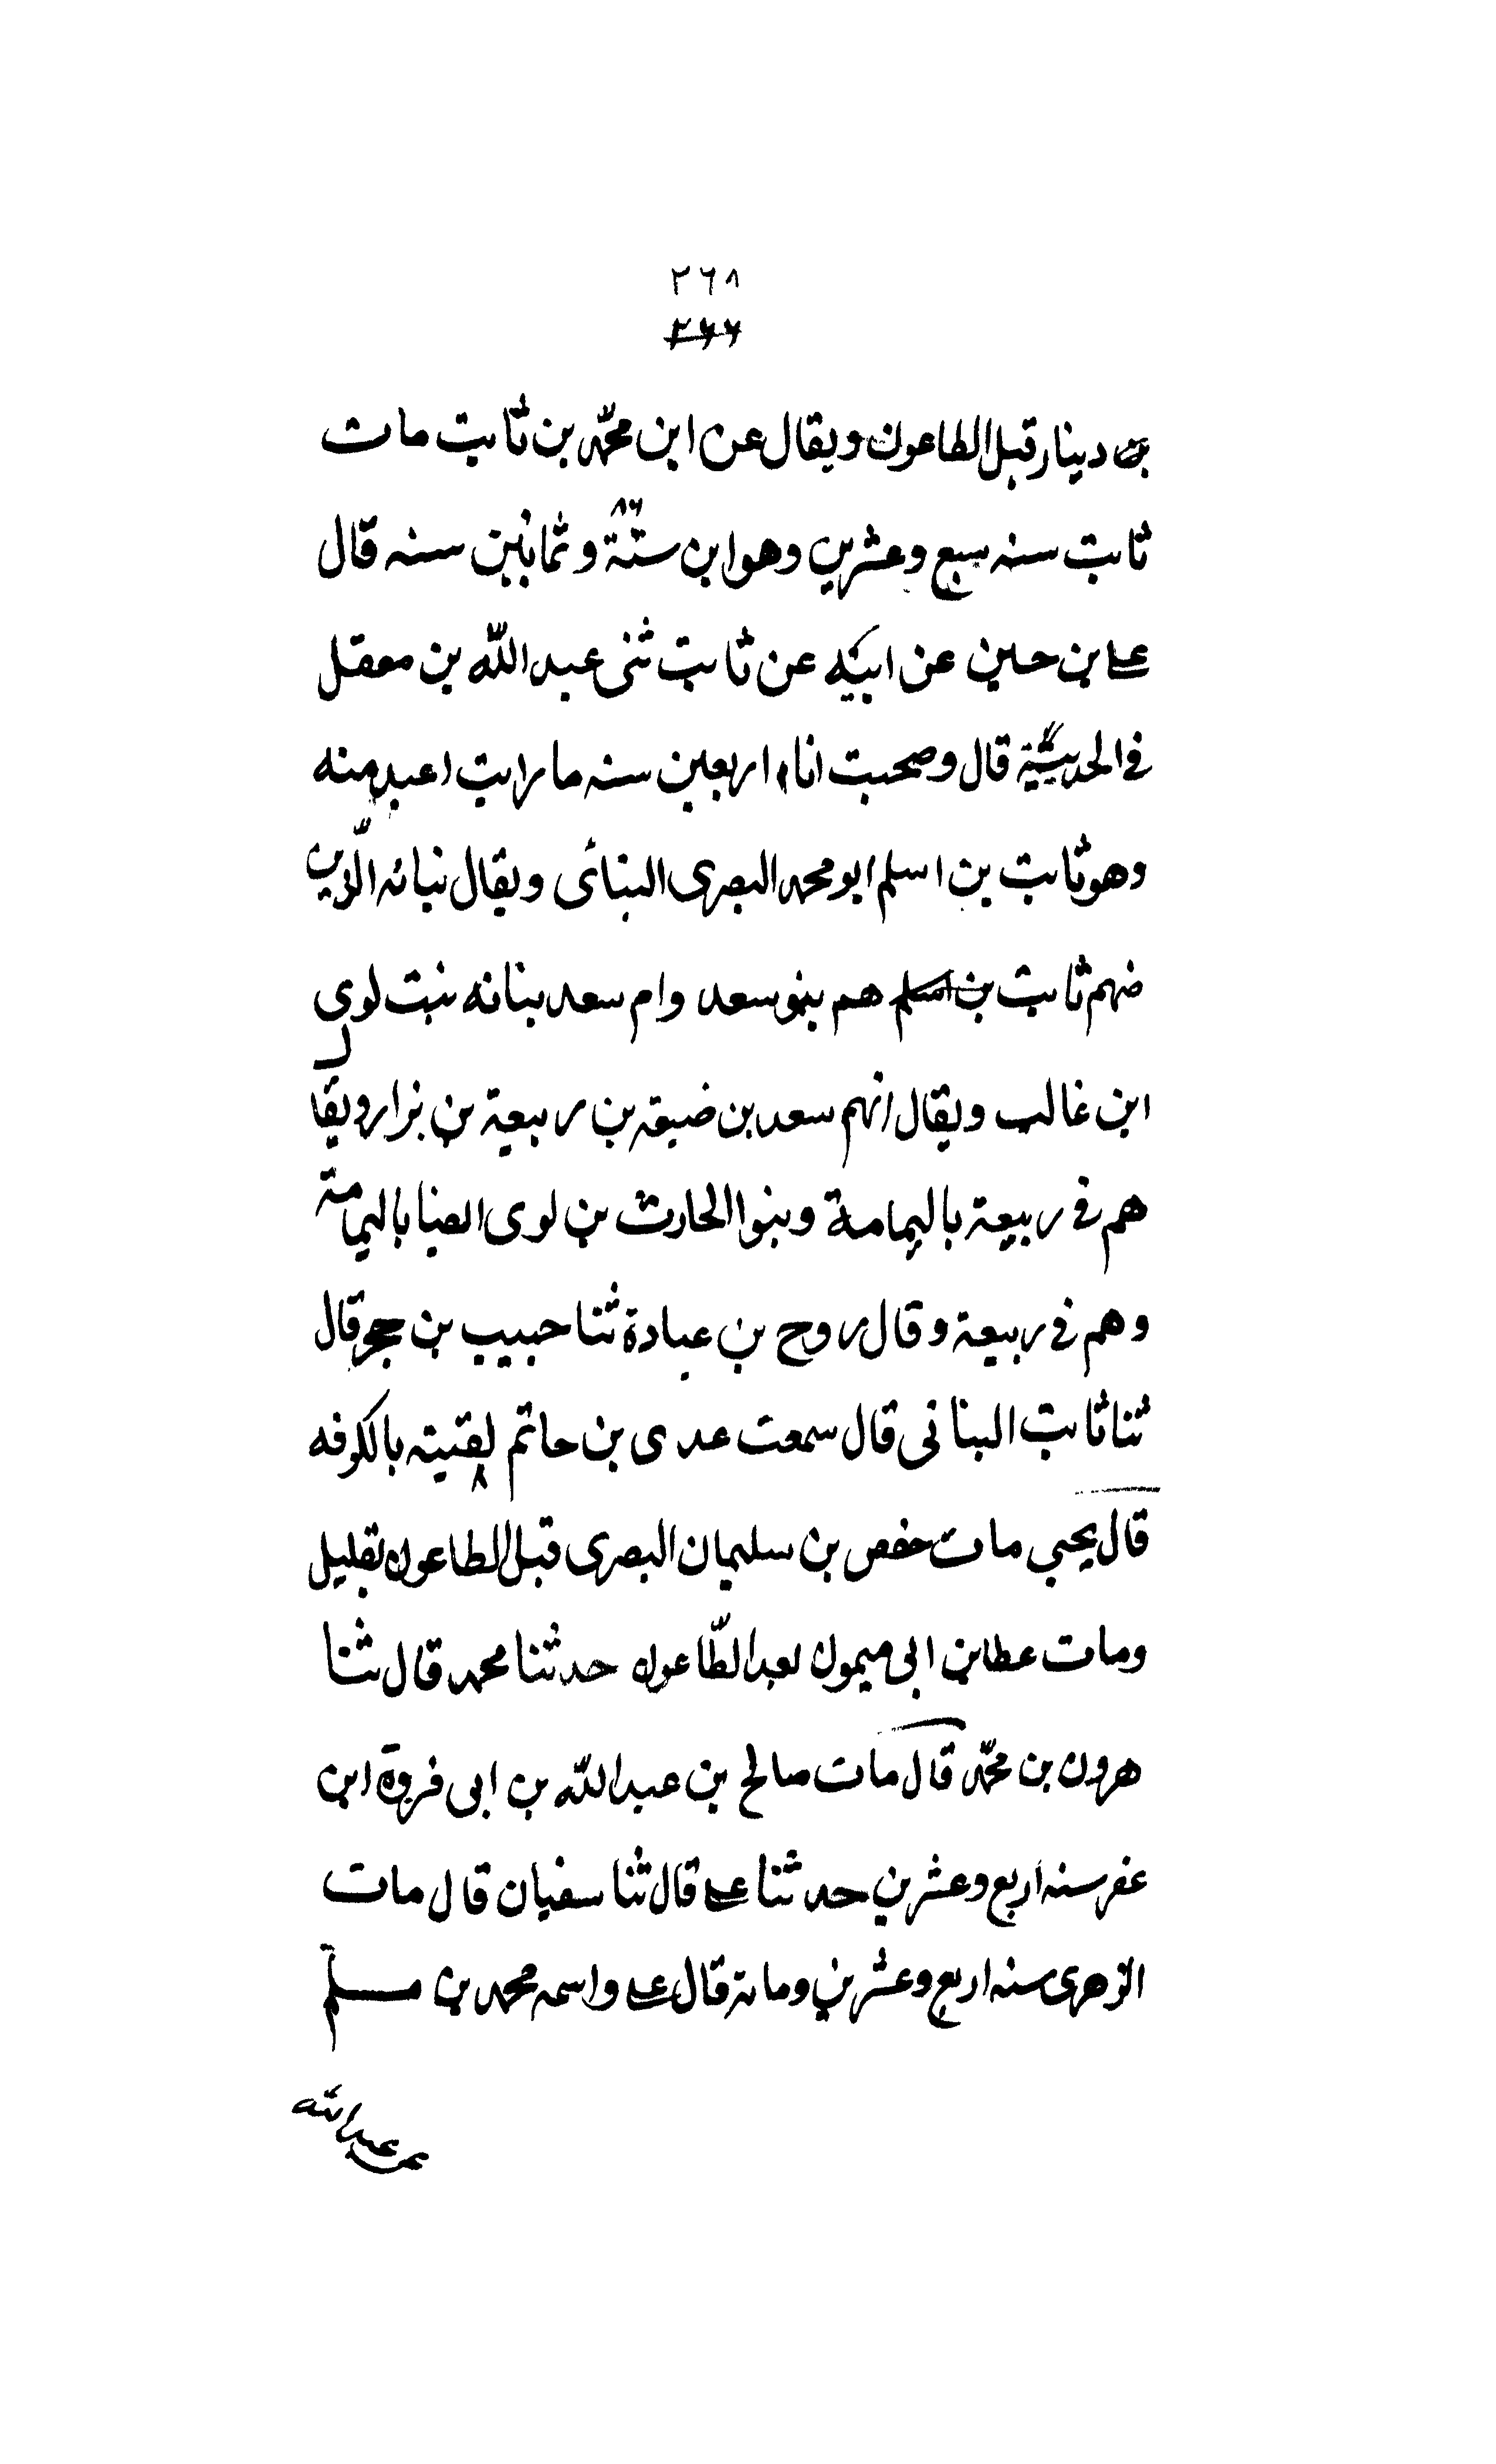 ٢٦٨
٢٦٦
بن دينار قبل الطاعون ويقال عن ابن محمّد بن ثابت مات
٨٦
ثابت سنه سبع وعشرين وهو ابن ستّة وثمانين سنه قال
على بن حسين عن ابيه عن ثابت ثنى عبد اللّه بن معقل
فى الحديبية قال وصحبت انسا اربعين سنه ما رايت اعبد منه
وهو ثابت بن اسلم ابو محمد البصرى البنانى ويقال بنانه الّذين
منهم ثابت بن اسلم هم بنو سعد وام سعد بنانه بنت لوى
ابن غالب ويقال انهم سعد بن ضبيعة بن ربيعة بن نزار ويقال
هم فى ربيعة باليمامة وبنوا الحارث بن لوى ايضا باليمامة
وهم فى ربيعة وقال روح بن عبادة ثنا حبيب بن حجر قال
ثنا ثابت البنانى قال سمعت عدى بن حاتم لقيته بالكوفه
قال يحيى مات حفص بن سليمان البصرى قبل الطاعون بقليل
ومات عطا بن ابى ميمون بعد الطّاعون حدثنا محمد قال ثنا
هرون بن محمّد قال مات صالح بن عبد اللّه بن ابى فروة ابن
عفر سنه اربع وعشرين حدثنا على قال ثنا سفيان قال مات
الزهرى سنه اربع وعشرين ومائة قال على واسمه محمد بن مسلم
بن عبد الله